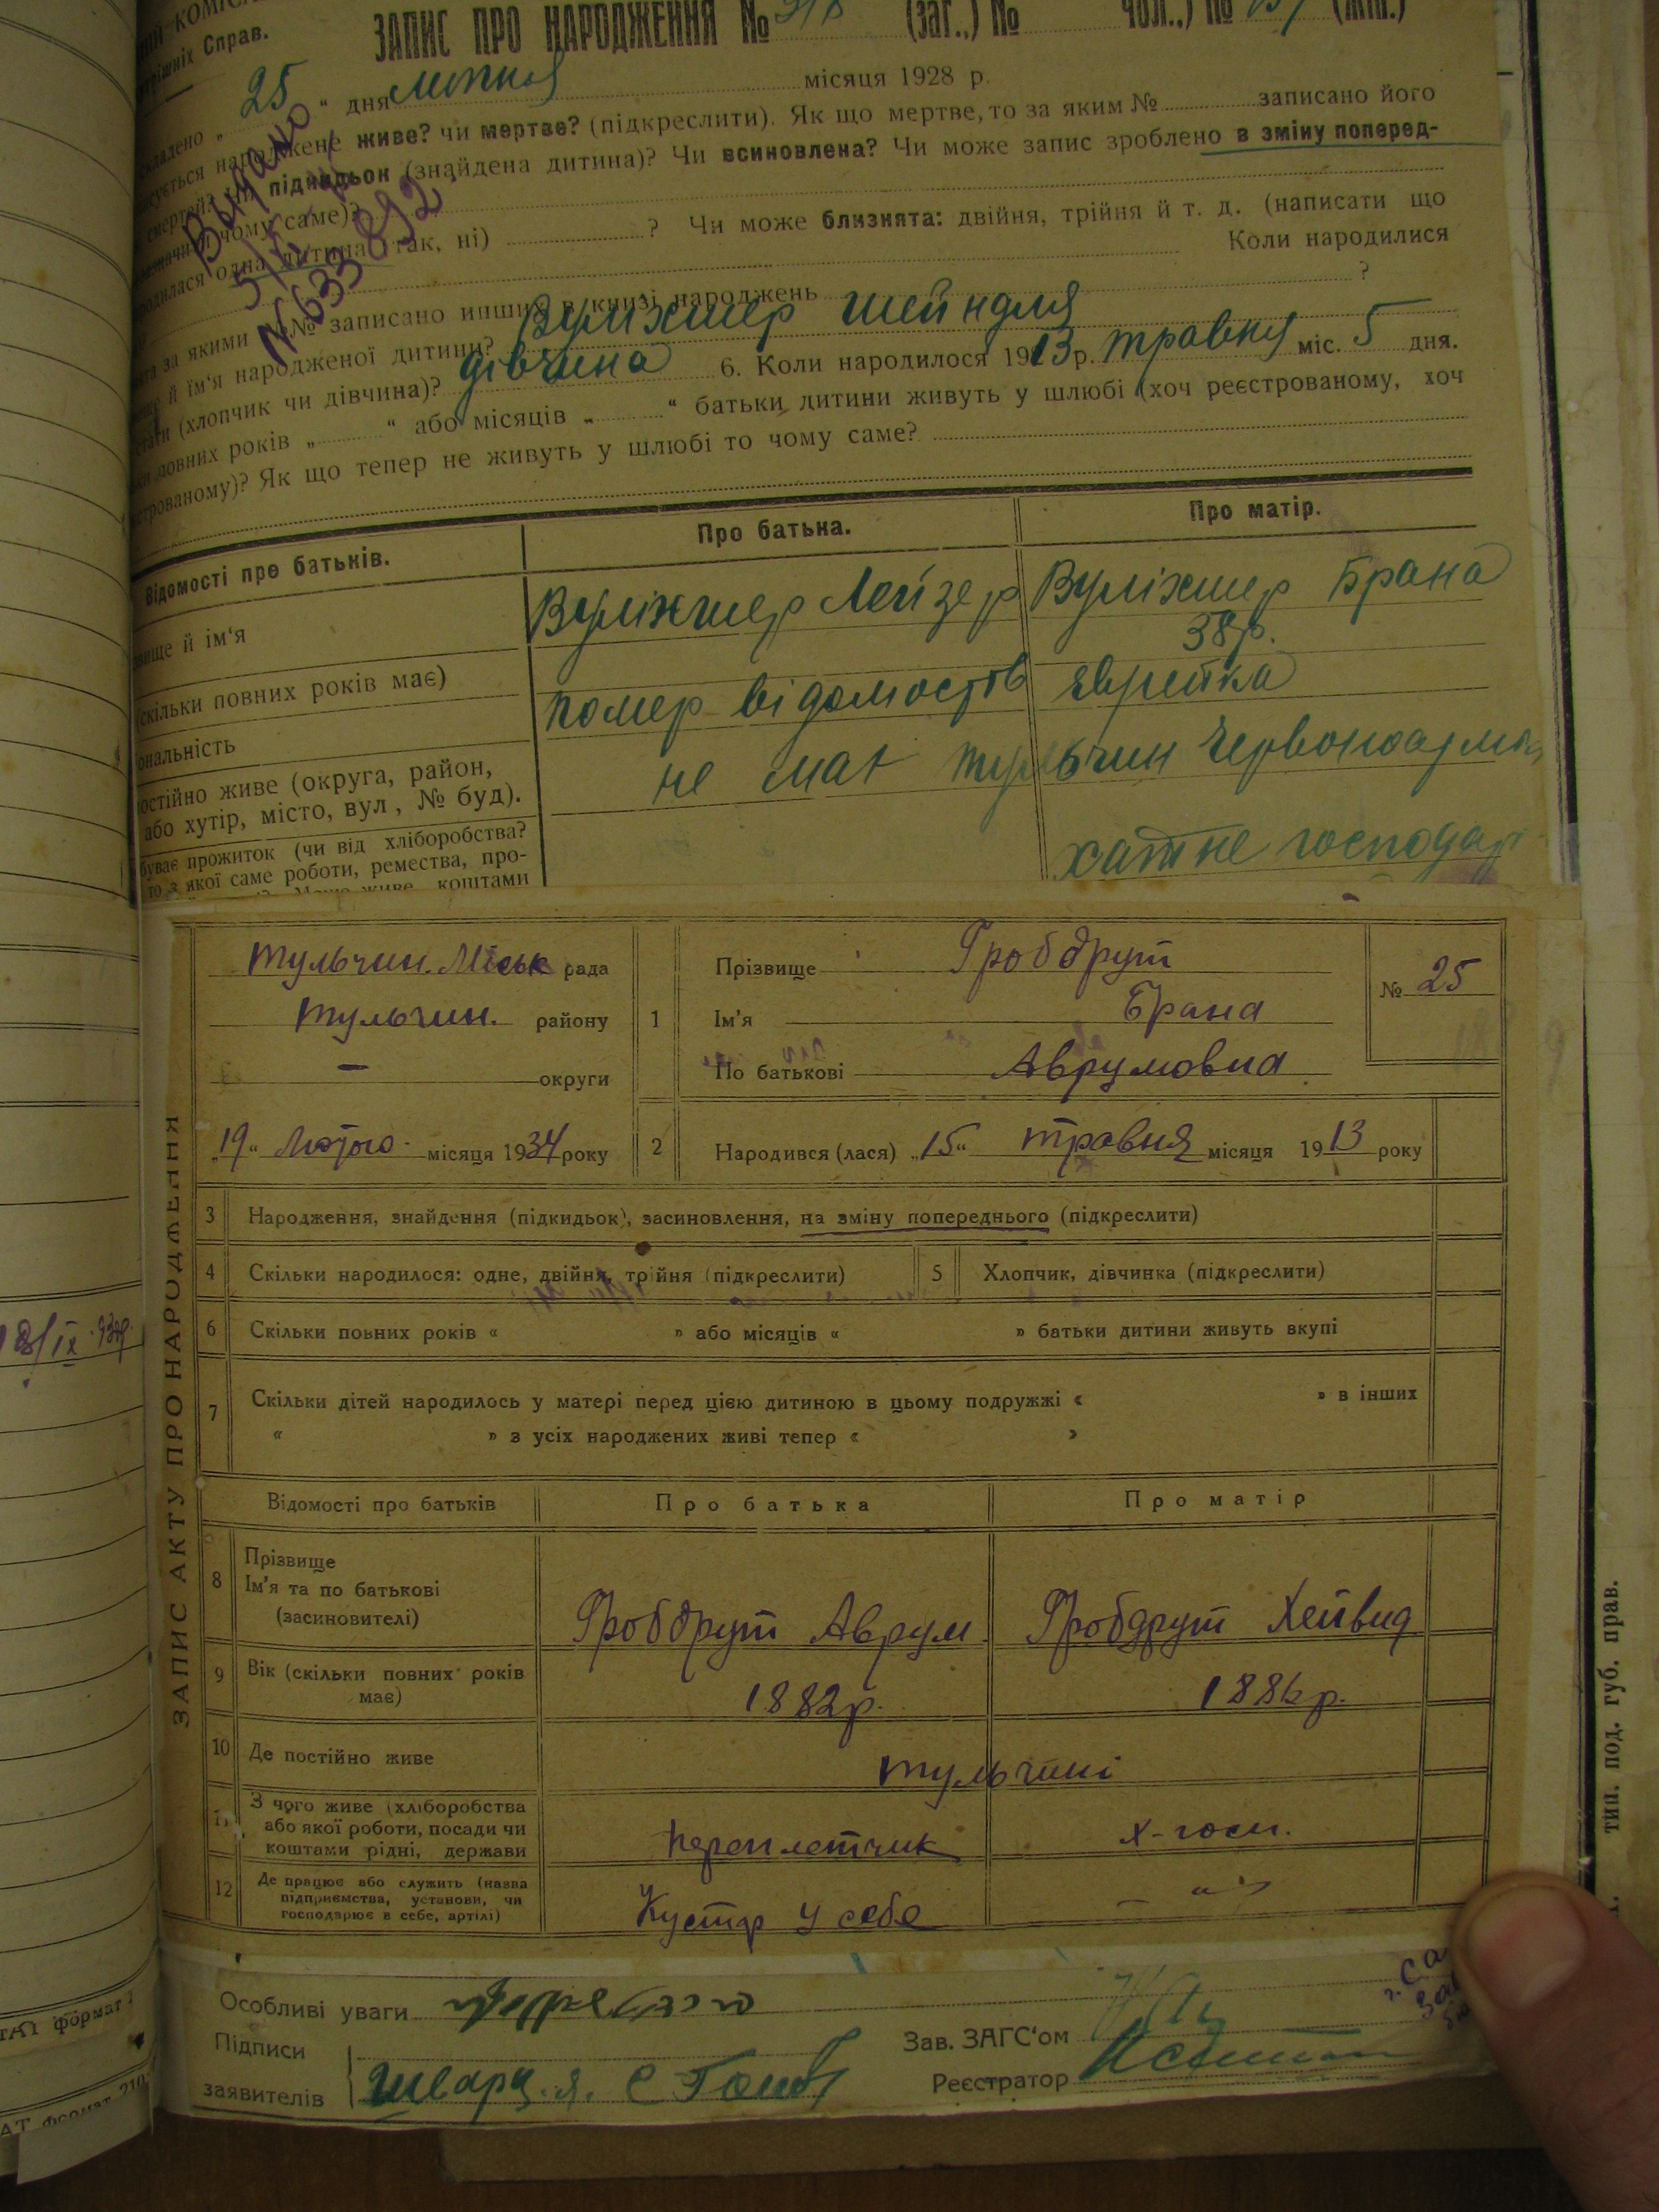 ЗАПИС ПРО НАРОДЖЕННЯ № 318 (заг..) № чол..) №
ішніх Справ.
„ 25 “ дня липня місяця 1928 р.
народжене живе? чи мертве? (підкреслити). Як що мертве, то за яким № записано його
підкидьок (знайдена дитина)? Чи всиновлена? Чи може запис зроблено в зміну поперед-
чому саме)?
одна дитина (так, ні) ? Чи може близнята: двійня, трійня й т. д. (написати що
Коли народилися
за якими №№ записано инших в книзі народжень ?
Видано
5/
N 633892
й ім‘я народженої дитини? Вуліхшер Шейндля
(хлопчик чи дівчина)? дівчина 6. Коли народилося 1913 р. травня міс. 5 дня.
повних років „ “ або місяців „ “ батьки дитини живуть у шлюбі (хоч реєстрованому, хоч
Як що тепер не живуть у шлюбі то чому саме?
Відомості про батьків. Про батька. Про матір.
й ім‘я Вуліхшер Лейзер Вуліхшер Брана
скільки повних років має) 38р.
помер відомостів Єврейка
не має Тульчин Червоноарм
постійно живе (округа, район,
або хутір, місто, вул, № буд).
прожиток (чи від хліборобства?
якої саме роботи, ремества, про-
коштами
хатне господар
Тульчин. Міськ рада 1 Прізвище Гробдрут № 25
Тульчин. району Ім'я Брана
— округи По батькові Аврумовна
„19“ Лютого місяця 1934 року 2 Народився (лася) „15“ травня місяця 1913 року
ЗАПИС АКТУ ПРО НАРОДЖЕННЯ
3 Народження, знайдення (підкидьок), засиновлення, на зміну попереднього (підкреслити)
4 Скільки народилося: одне, двійня, трійня (підкреслити) 5 Хлопчик, дівчинка (підкреслити)
6 Скільки повних років « » або місяців « » батьки дитини живуть вкупі
7 Скільки дітей народилось у матері перед цією дитиною в цьому подружжі « » в інших
« » з усіх народжених живі тепер « »
Відомості про батьків Про батька Про матір
8 Прізвище
Ім'я та по батькові
(засиновителі)
Гробдрут Аврум Гробдрут Хейвид
9 Вік (скільки повних років
має)
1882р. 1886р.
10 Де постійно живе Тульчині
11 З чого живе (хліборобства
або якої роботи, посади чи
коштами рідні, держави
переплетчик х-госп.
12 Де працює або служить (назва
підприємства, установи, чи
господарює в себе, артілі)
Кустар у себе — „ —
Особливі уваги
Підписи Зав. ЗАГС‘ом
заявителів Шварц. Реєстратор
тип. под. губ. прав.